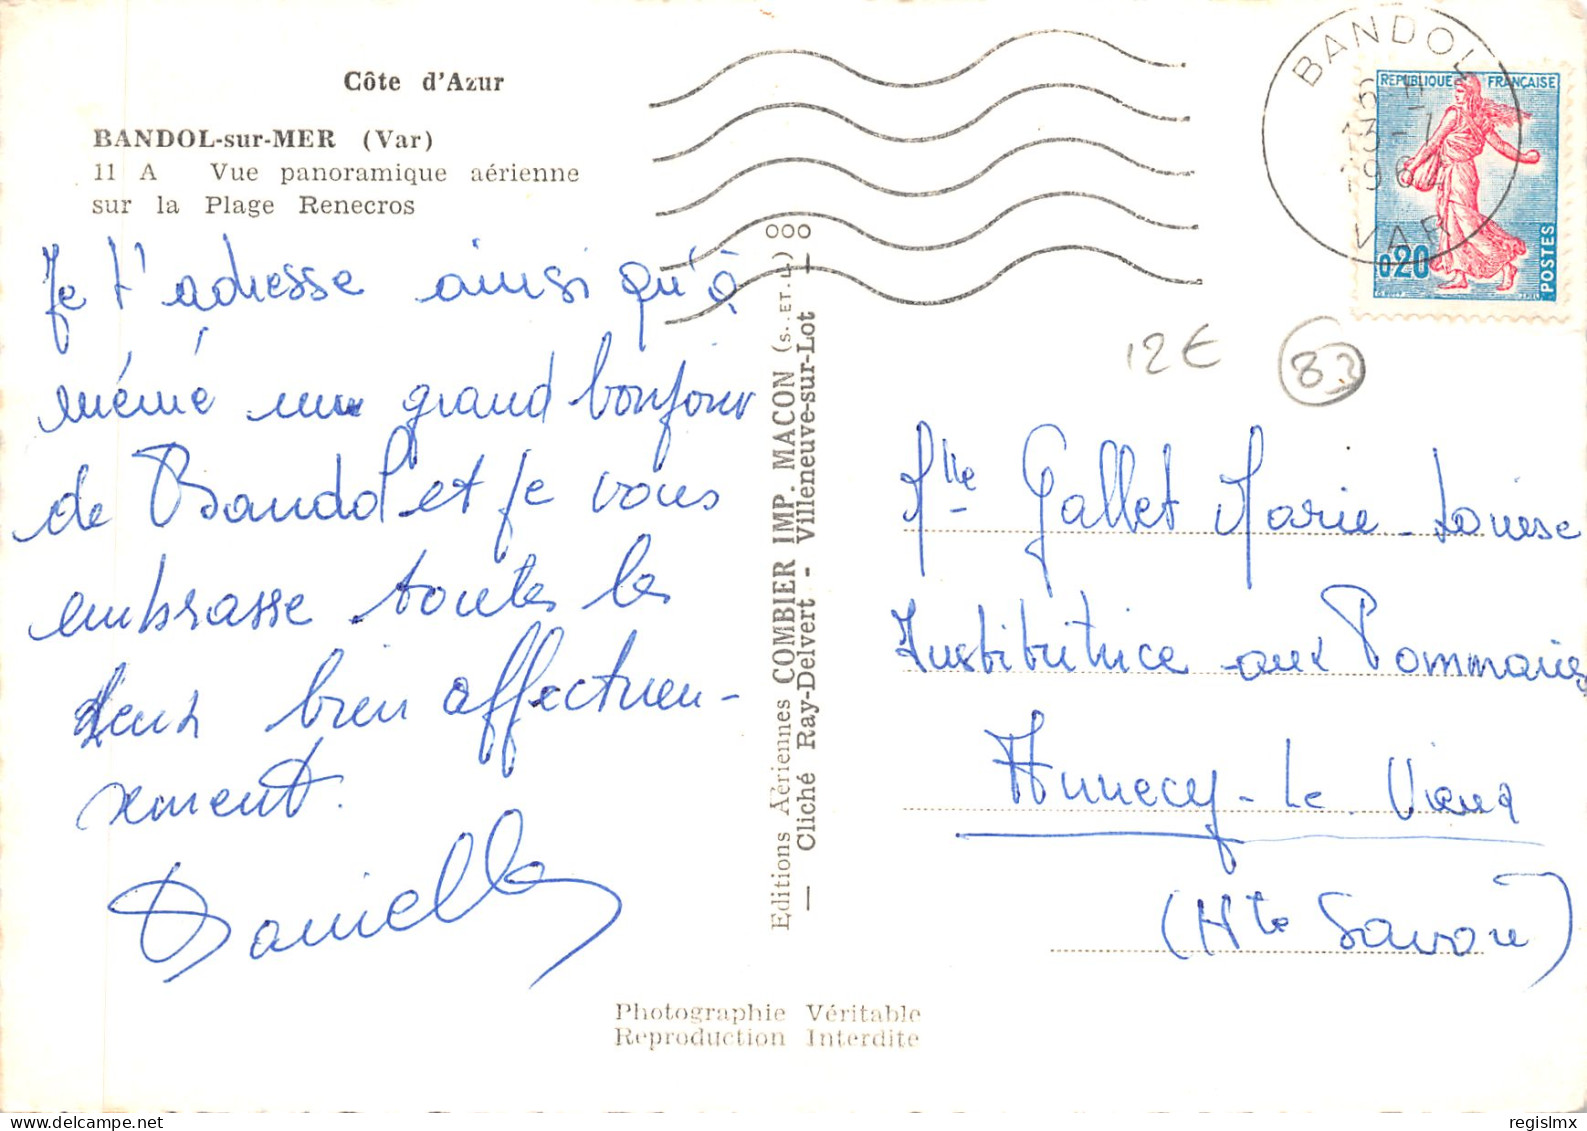 Côte d'Azur
BANDOL-sur-MER (Var)
11 A Vue panoramique aérienne
sur la Plage Renecros
Je t'adresse ainsi qu'à
mémé un grand bonjour
de Bandol et je vous
embrasse toutes les
deux bien affectueu-
sement.
Danielle
Editions Aériennes COMBIER IMP. MACON (S. ET. L.) OOO
— Cliché Ray-Delvert - Villeneuve-sur-Lot —
Photographie Véritable
Reproduction Interdite
BANDOL
16 H
13-1
1964
VAR
REPUBLIQUE FRANÇAISE
0,20
POSTES
12€ 83
Mlle Gallet Marie-Louise
Instititrice aux Pommaries
Annecy-Le Vieux
(Hte Savoie)
regislmx